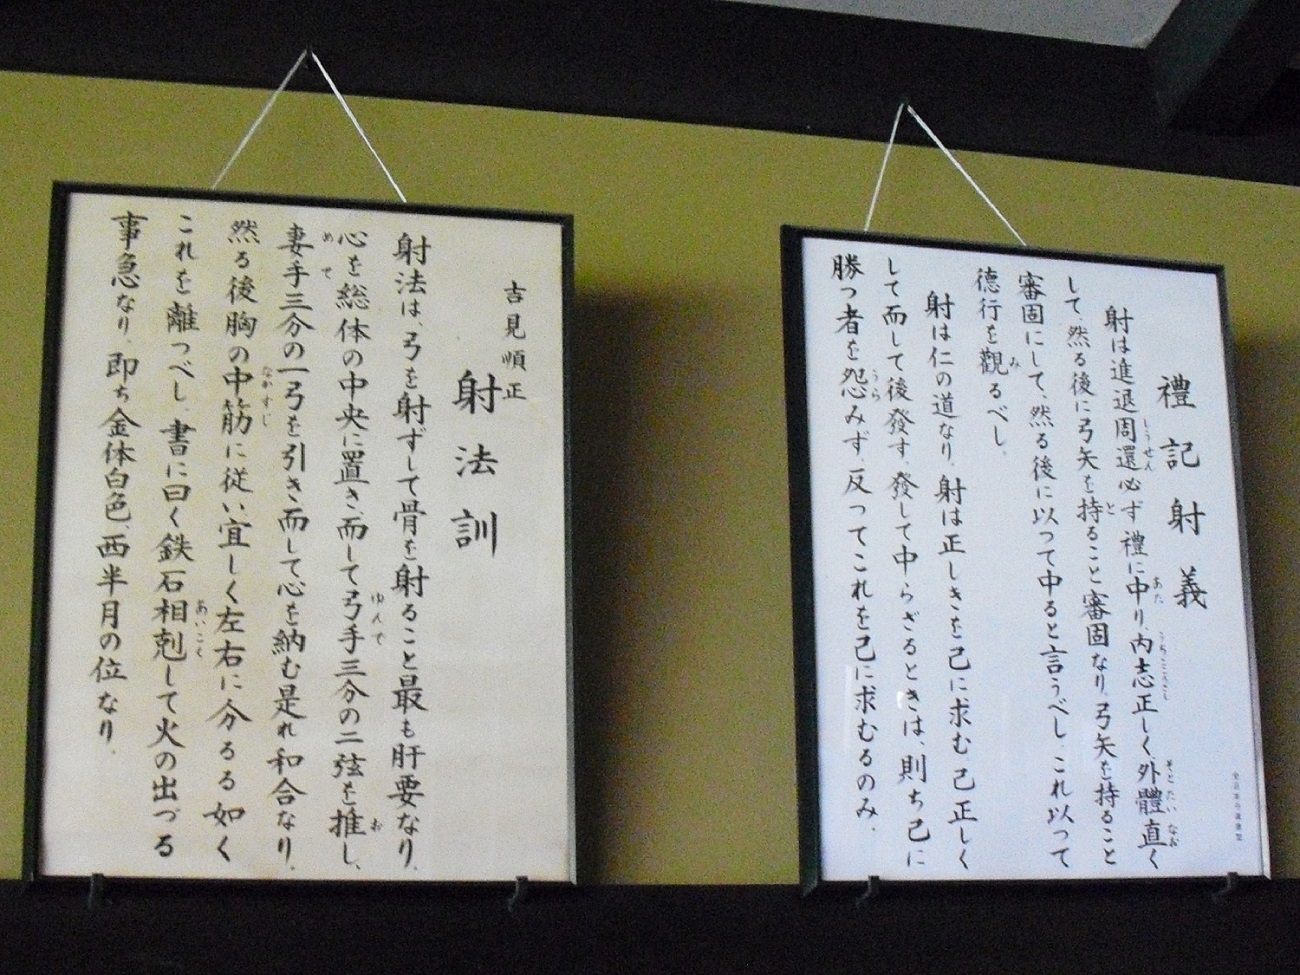 禮記射義
射は進退周還必ず禮に中り、内志正しく、外體直く
して、然る後に弓矢を持ること審固なり。弓矢を持ること
審固にして、然る後に以って中ると言うべし。これ以って
德行を觀るべし。
射は仁の道なり。射は正しきを己に求む。己正しく
して而して後發す。發して中らざるときは、則ち己に
勝つ者を怨みず。反ってこれを己に求むるのみ。
しうせん
あた
うちこころざし
そとたいなお
と
み
うら
全日本弓道連盟
射法訓
吉見順正
射法は、弓を射ずして骨を射ること最も肝要なり。
心を総体の中央に置き、而して弓手三分の二弦を推し、
妻手三分の一弓を引き而して心を納む是れ和合なり。
然る後胸の中筋に従い宜しく左右に分るる如く
これを離つべし。書に曰く鉄石相剋して火の出づる
事急なり。即ち金体白色、西半月の位なり。
ゆんで
お
めて
なかすじ
あいこく